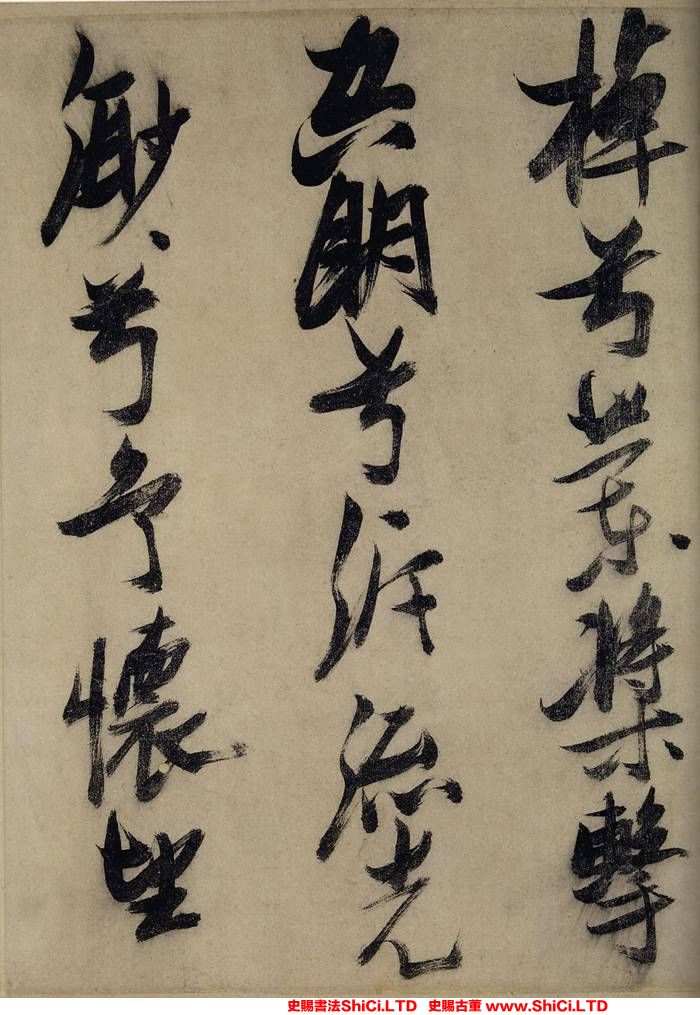 棹兮蘭槳擊
空明兮泝流光
渺〻兮予懷望
史賜書法ShiCi.LTD 史賜古董 www.ShiCi.LTD